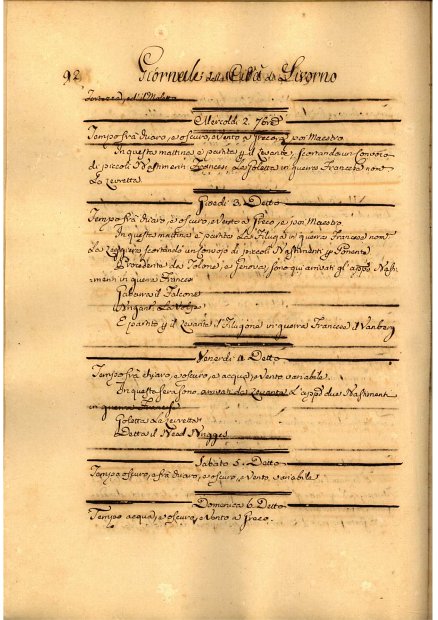 92 Giornale della Città di Livorno
Mercoldi 2. 7bre
Tempo frà chiaro, e oscuro, e vento a Greco, e poi Maestro
In questa mattina è partita p il Levante, scortando un Convoio
di piccoli Bastimenti Francesi, La Goletta in guerra Francese nom
La Levretta
Giovedi 3. Detto
Tempo frà chiaro, e oscuro, e vento a Greco, e poi Maestro
In questa mattina è partita La in guerra Francese nom
La scortando un Convojo di piccoli Bastimenti p Ponente
Procedenti da Tolone, e Genova, sono qui arrivati gl' appd Basti
menti in guerra Francesi
Gabarra il Falcone
Brigant. La Volpe
E partito p il Levante il in guerra Francese Il
Venerdi 4 Detto
Tempo frà chiaro, e oscuro, e acqua, e vento variabile
In questa sera sono arrivati da Levante L'appd due Bastimenti
in guerra Francesi
Goletta La Levretta
Detta il
Sabato 5. Detto
Tempo oscuro, e frà chiaro, e oscuro, e vento variabile
Domenica 6 Detto
Tempo acqua, e oscuro, e vento a Greco.